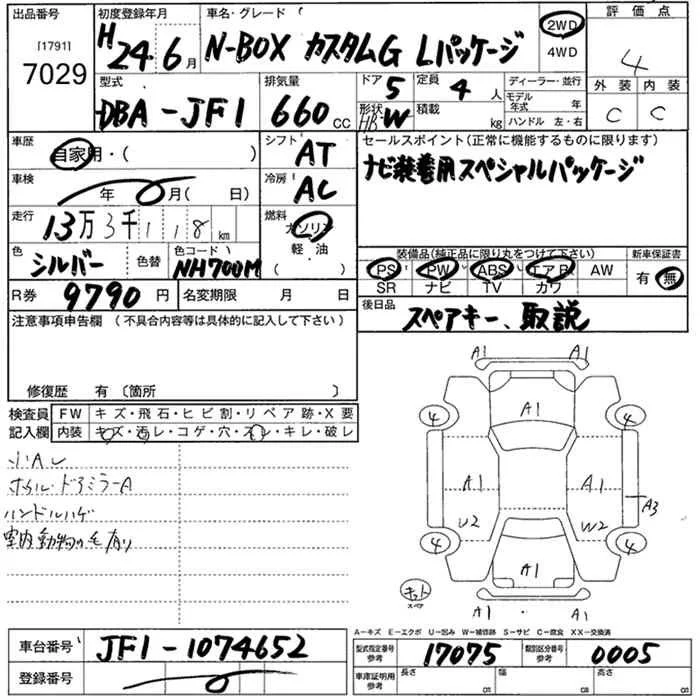 出品番号
[1791]
7029
初度登録年月
H 24 . 6 月
車名・グレード
N-BOX カスタムG Lパッケージ
2WD
4WD
評価点
4
外装 内装
C C
型式
DBA-JF1
排気量
660 cc
ドア 5
形状 HB W
定員 4 人
積載 kg
ディーラー・並行
モデル年式 年
ハンドル 左・右
車歴
自家用・( )
シフト AT
車検
年 月( 日)
冷房 AC
走行
13万3千118 km
燃料
ガソリン
軽油
( )
色 シルバー
色替
色コード NH700M
R券 9790 円
名変期限 月 日
セールスポイント(正常に機能するものに限ります)
ナビ装着用スペシャルパッケージ
装備品(純正品に限り丸をつけて下さい)
PS PW ABS エアB AW
SR ナビ TV カワ
新車保証書
有・無
後日品
スペアキー、取説
注意事項申告欄 (不具合内容等は具体的に記入して下さい)
修復歴 有 〔箇所 〕
検査員記入欄
FW キズ・飛石・ヒビ割・リペア跡・X要
内装 キズ・汚レ・コゲ・穴・スレ・キレ・破レ
小Aレ
ホイル・ドアミラーA
ハンドルハゲ
室内動物の毛有り
A1 A1
4 A1 4
A1 A1 A1
A3
U2 W2
4 4
A1
キット
スペア
A1 ・ A1
A-キズ E-エクボ U-凹み W-補修跡 S-サビ C-腐食 XX-交換済
車台番号 JF1-1074652
登録番号
型式指定番号 参考 17075
類別区分番号 参考 0005
車庫証明用 参考
長さ cm 幅 cm 高さ cm